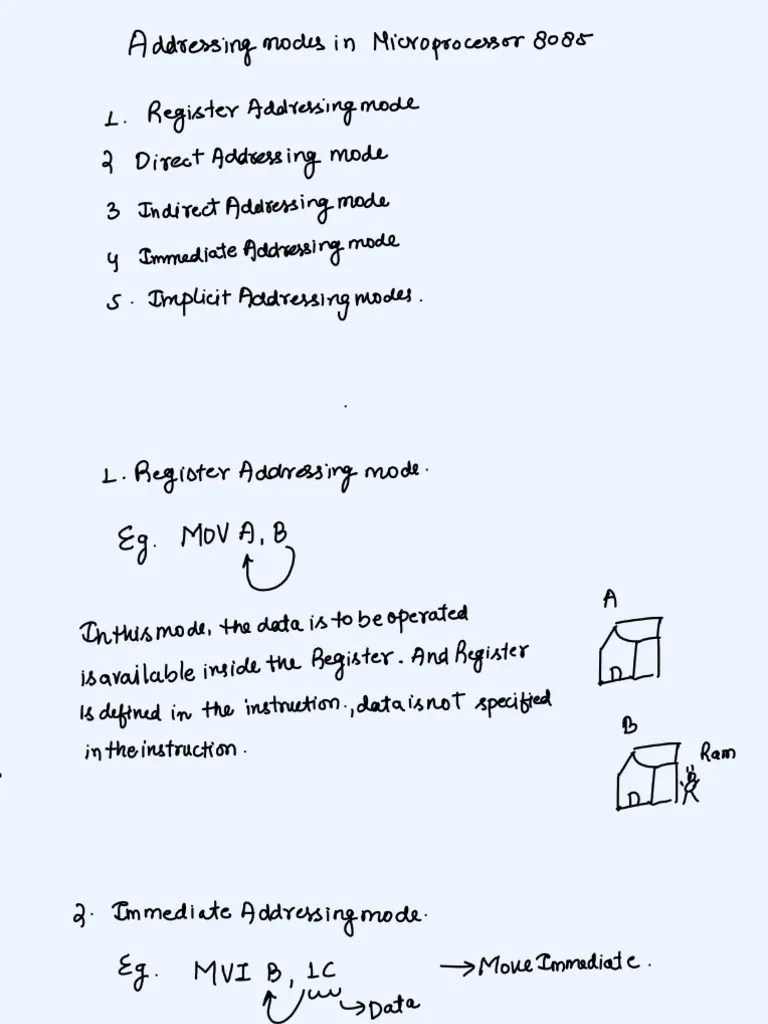 Addressing modes in Microprocessor 8085
1. Register Addressing mode
2 Direct Addressing mode
3 Indirect Addressing mode
4 Immediate Addressing mode
5. Implicit Addressing modes.
1. Register Addressing mode.
Eg. MOV A, B
In this mode, the data is to be operated
is available inside the Register. And Register
is defined in the instruction., data is not specified
in the instruction.
A
B
Ram
2. Immediate Addressing mode.
Eg. MVI B, 1C → Move Immediate.
→ Data